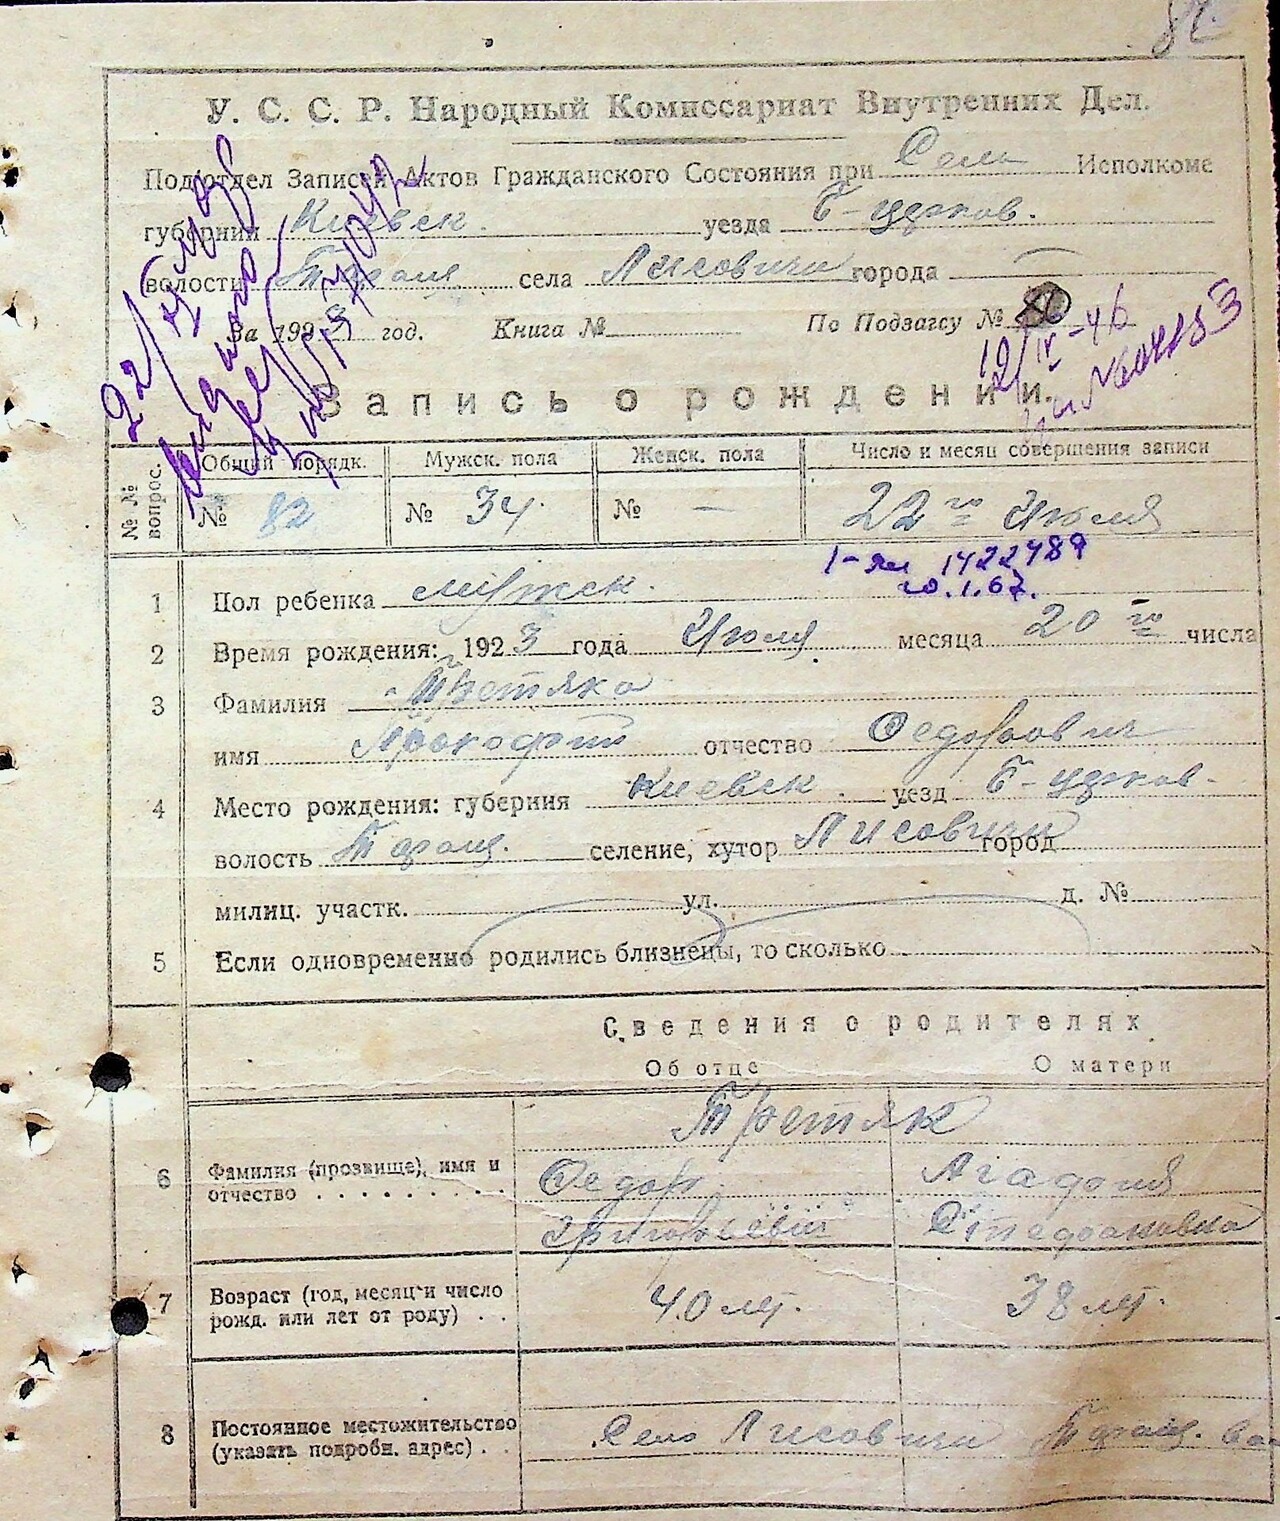 82.
У. С. С. Р. Народный Комиссариат Внутренних Дел.
Под'отдел Записей Актов Гражданского Состояния при Сель Исполкоме
губернии Киевск. уезда Б-церков.
волости Таращ. села Лисовичи города —
За 1923 год. Книга № По Подзагсу №
12/IV-46
Запись о рождении.
№ № вопрос. Общий порядк. Мужск. пола Женск. пола Число и месяц совершения записи
№ 82 № 34. № — 22 го Июля
1422489
20.1.67.
1 Пол ребенка мужск.
2 Время рождения: 1923 года Июля месяца 20 го числа
3 Фамилия Третяка
имя Прокофий отчество Федорович
4 Место рождения: губерния Киевск. уезд Б-церков-
волость Таращ. селение, хутор Лисовичи город
милиц. участк. ул. д. №
5 Если одновременно родились близнецы, то сколько
Сведения о родителях
Об отце О матери
Третяк
6 Фамилия (прозвище), имя и отчество Федор Агафия
Григорьевич Стефановна
7 Возраст (год, месяц и число рожд. или лет от роду) 40 лет. 38 лет.
8 Постоянное местожительство (указать подробн. адрес) Село Лисовичи Таращ. вол